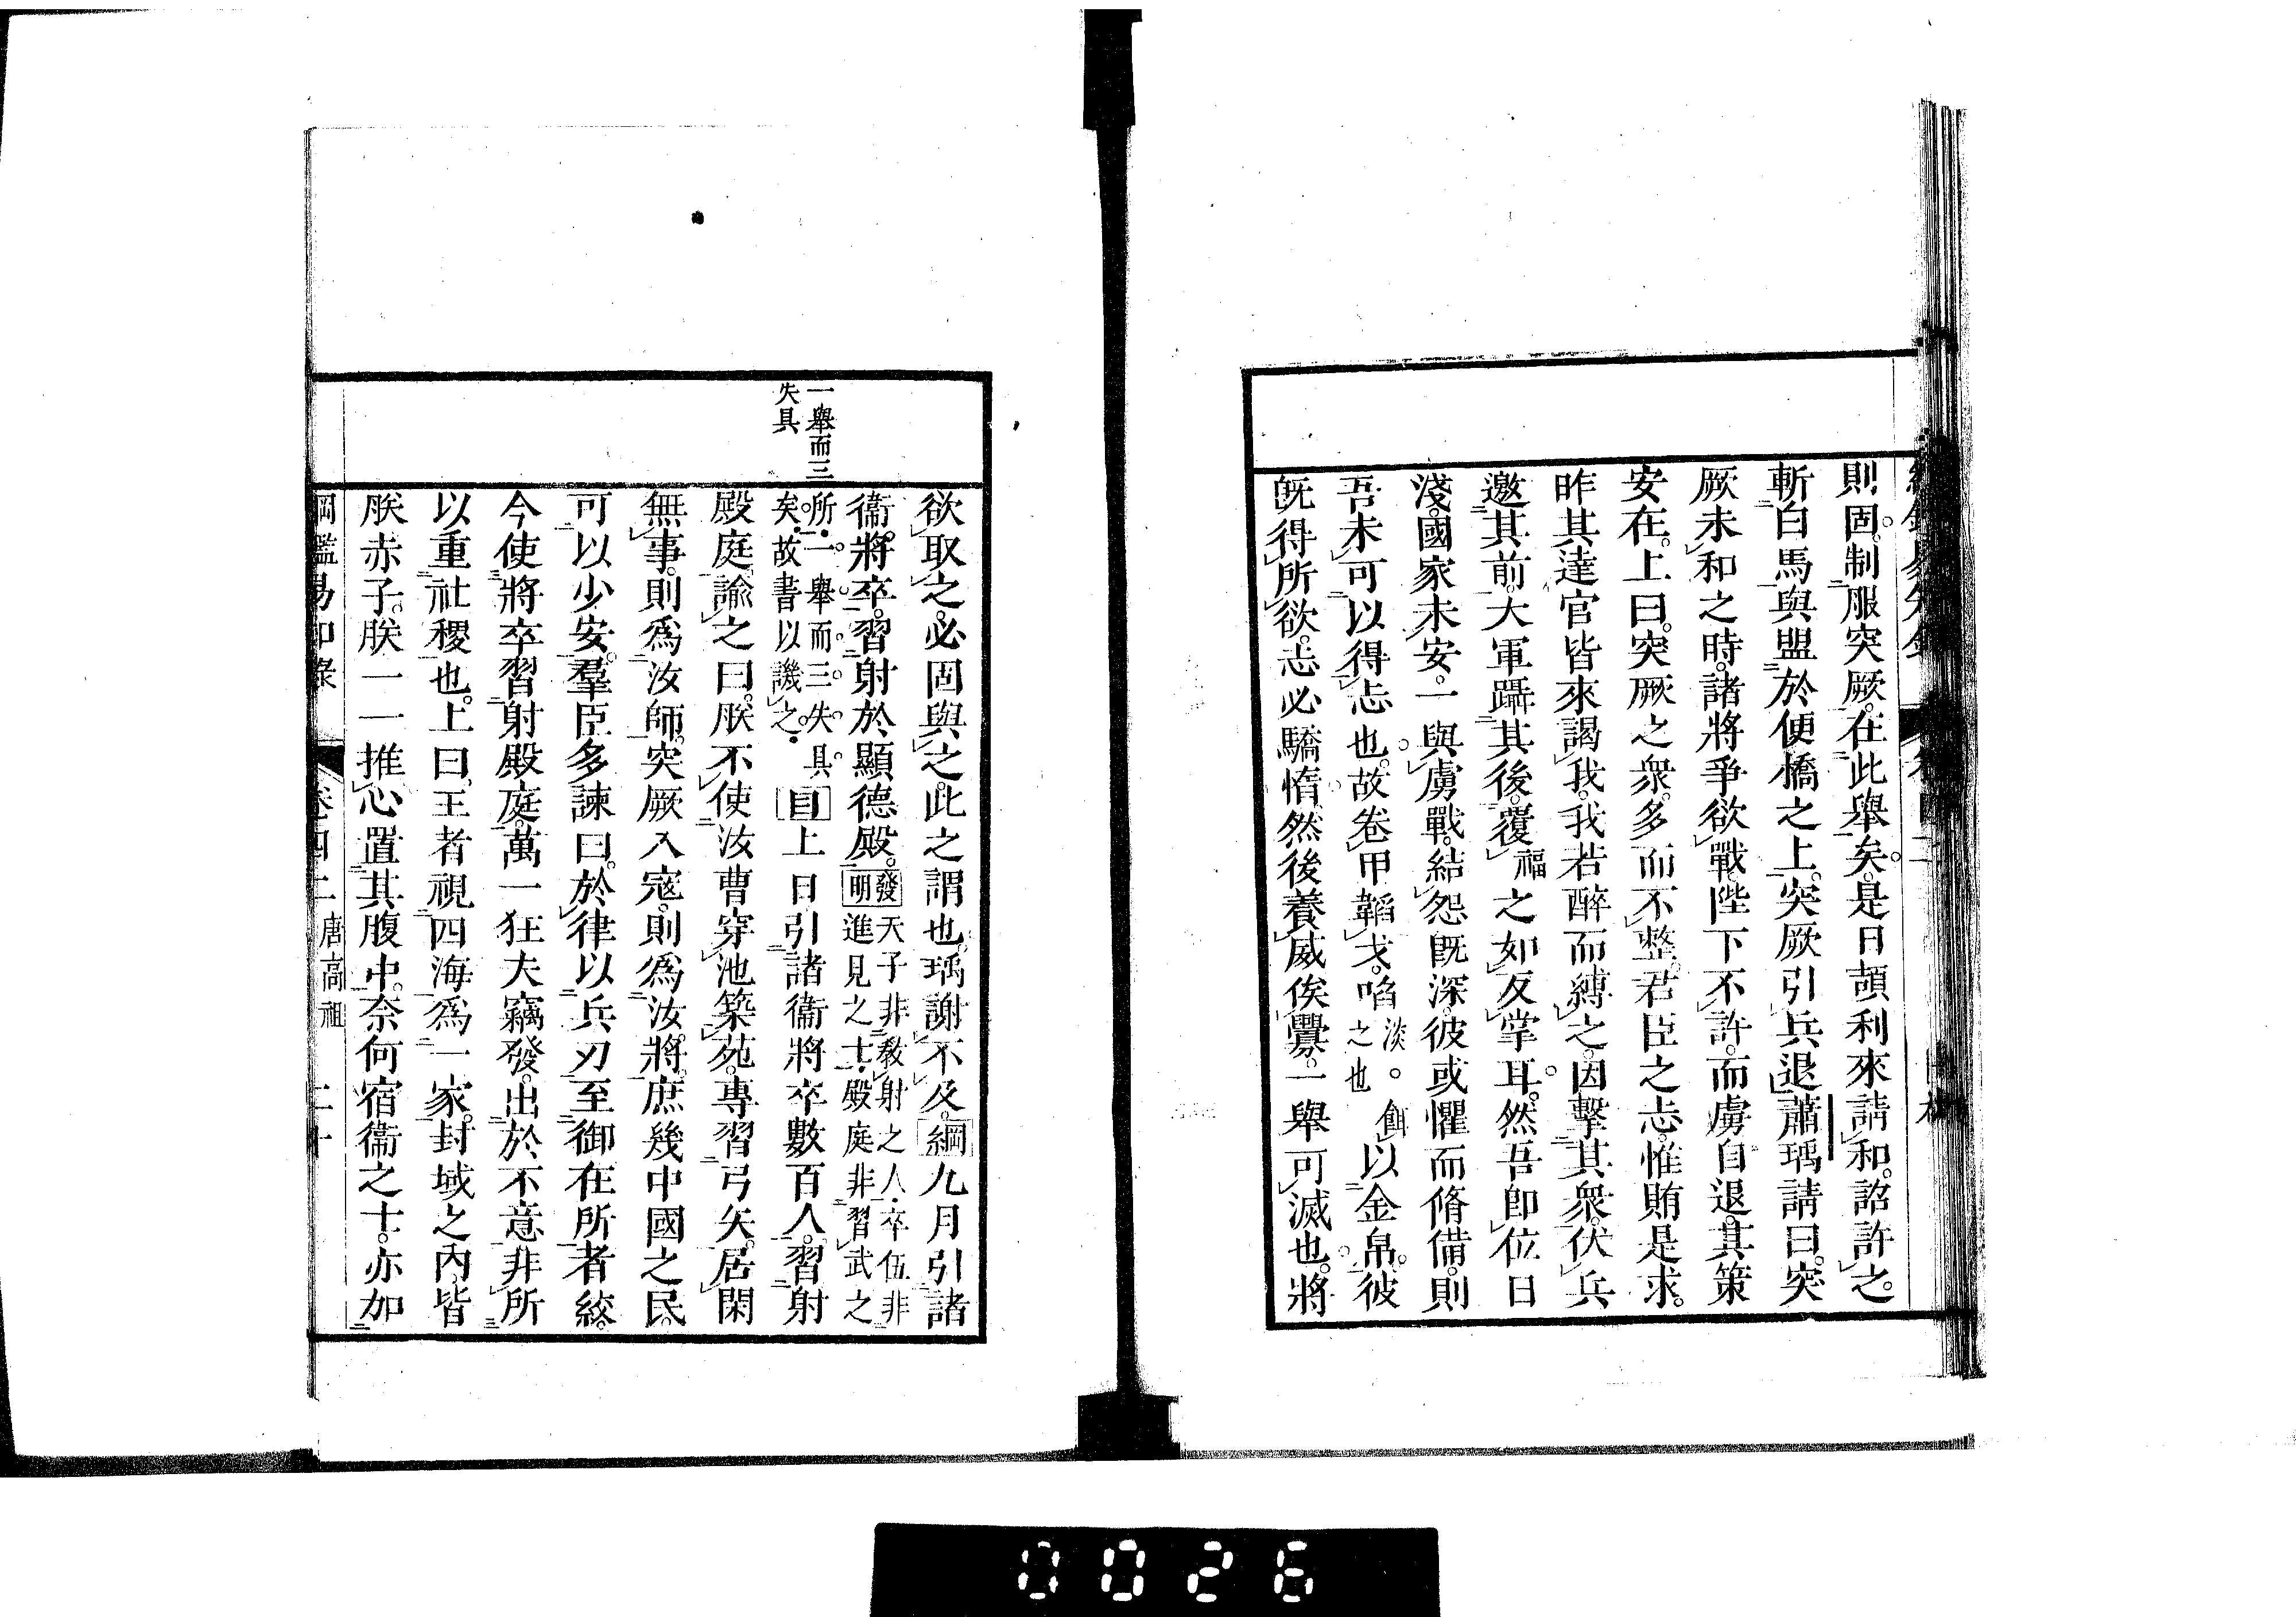 則固。制服突厥。在此舉矣。是日頡利來請和。詔許之。
斬白馬與盟於便橋之上。突厥引兵退蕭瑀請曰。突
厥未和之時。諸將爭欲戰。陛下不許。而虜自退。其策
安在。上曰。突厥之衆。多而不整。君臣之志。惟賄是求。
昨其達官皆來謁我。我若醉而縛之。因擊其衆。伏兵
邀其前。大軍躡其後。覆福之如反掌耳。然吾卽位日
淺。國家未安。一與虜戰。結怨旣深。彼或懼而脩備。則
吾未可以得志也。故卷甲韜戈。啗淡。之也餌以金帛。彼
旣得所欲。志必驕惰。然後養威俟釁。一舉可滅也。將
一舉而三
失具
欲取之。必固與之。此之謂也。瑀謝不及。綱九月引諸
衞將卒。習射於顯德殿。發明天子非教射之人。卒伍非進見之士。殿庭非習武之
所。一舉而三失具矣。故書以譏之。目上日引諸衞將卒數百人。習射
殿庭。諭之曰。朕不使汝曹穿池築苑。專習弓矢。居閑
無事。則爲汝師。突厥入寇。則爲汝將。庶幾中國之民。
可以少安。羣臣多諫曰。於律以兵刃至御在所者絞。
今使將卒習射殿庭。萬一狂夫竊發。出於不意。非所
以重社稷也。上曰。王者視四海爲一家。封域之內。皆
朕赤子。朕一一推心置其腹中。奈何宿衞之士。亦加
綱鑑易知錄 卷四二 唐高祖 二十
0026